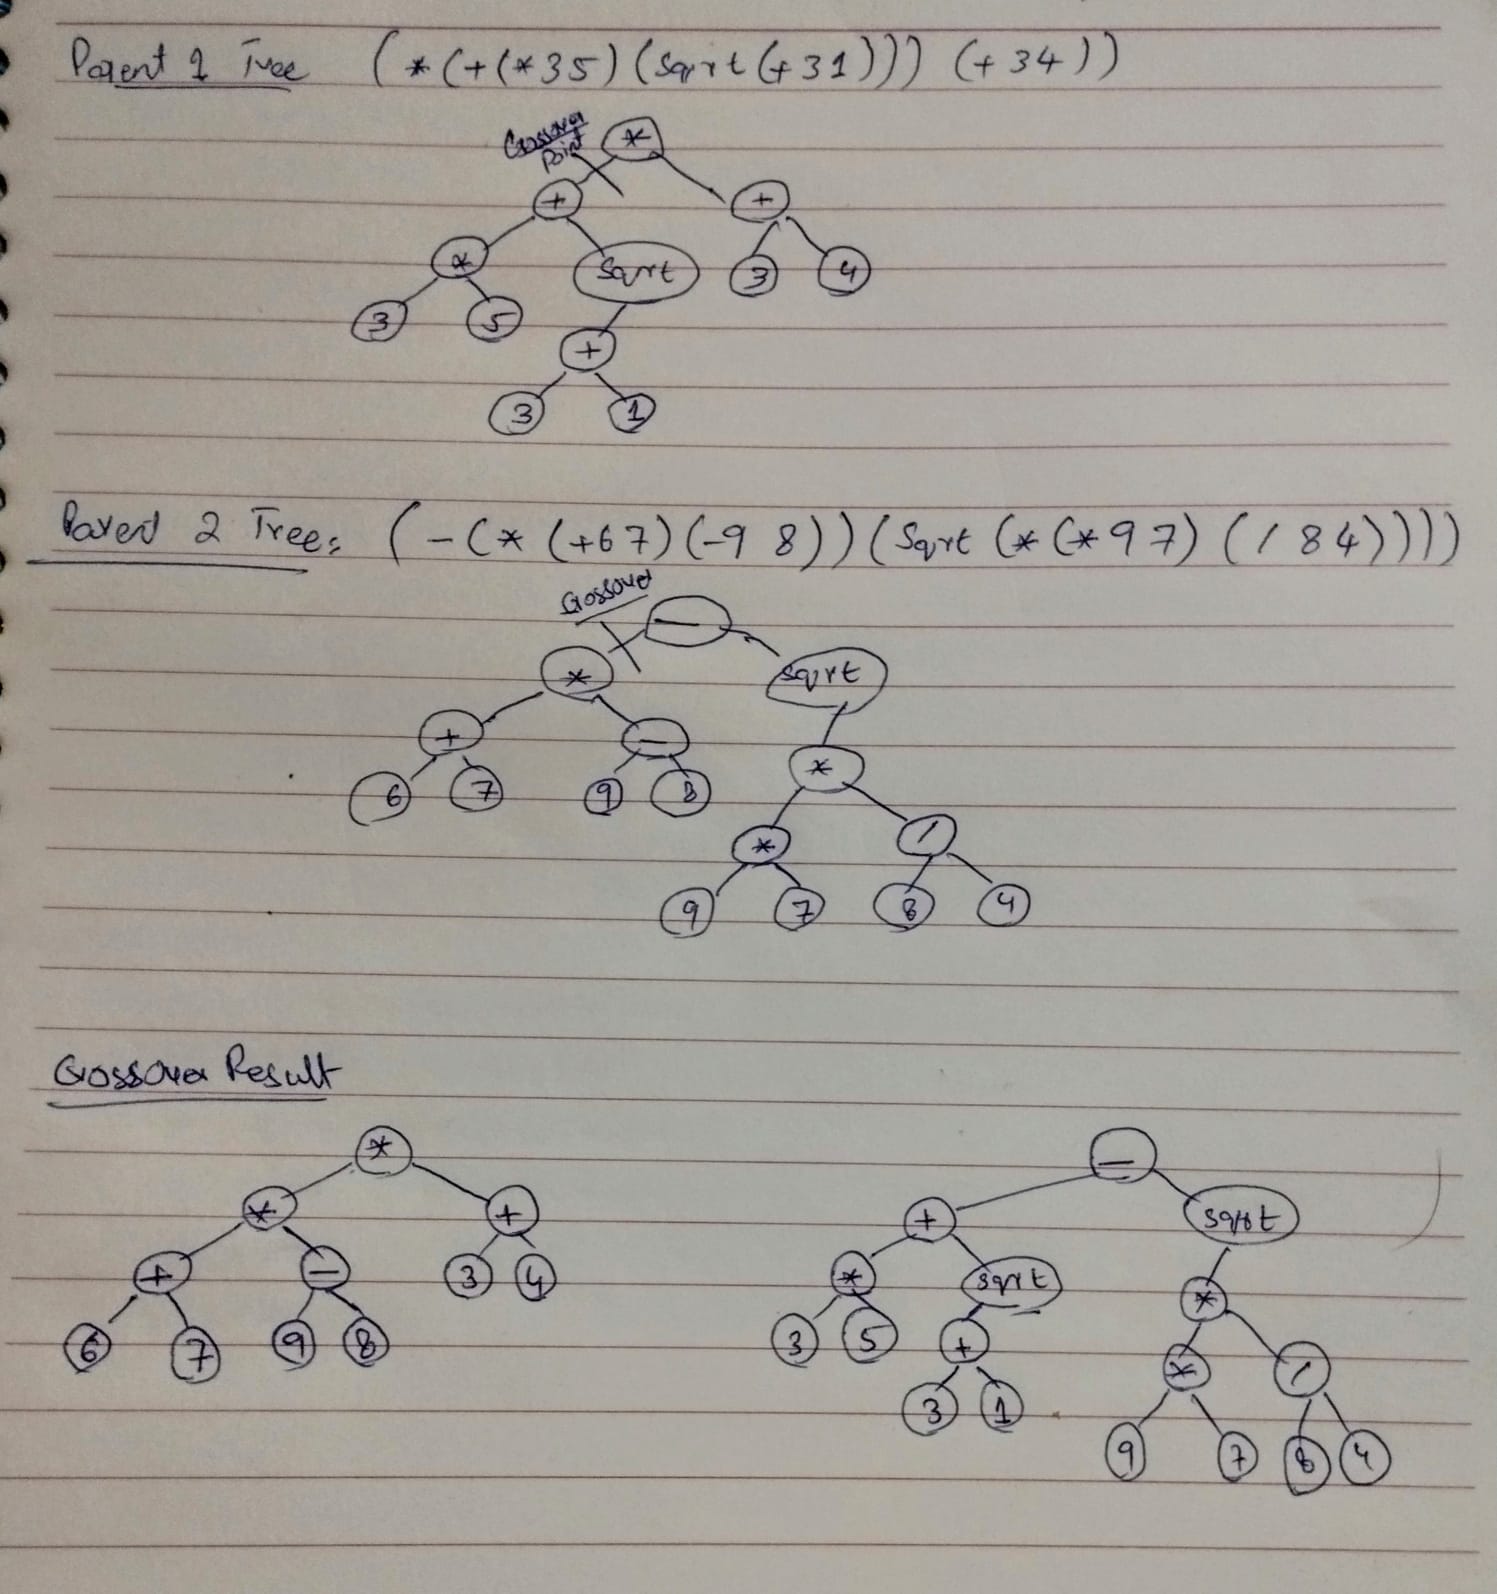 Parent 1 Tree (*(+(*35)(sqrt(+31))) (+34))
Crossover
Point
*
+ +
* sqrt 3 4
3 5
+
3 1
Parent 2 Tree: (-(*(+67)(-9 8))(Sqrt(*(*97)(/84))))
Crossover
—
* sqrt
+ —
*
6 7 9 8
* /
9 7 8 4
Crossover Result
* —
* + + sqrt
+ — 3 4 * sqrt *
6 7 9 8 3 5 + * /
3 1 9 7 8 4